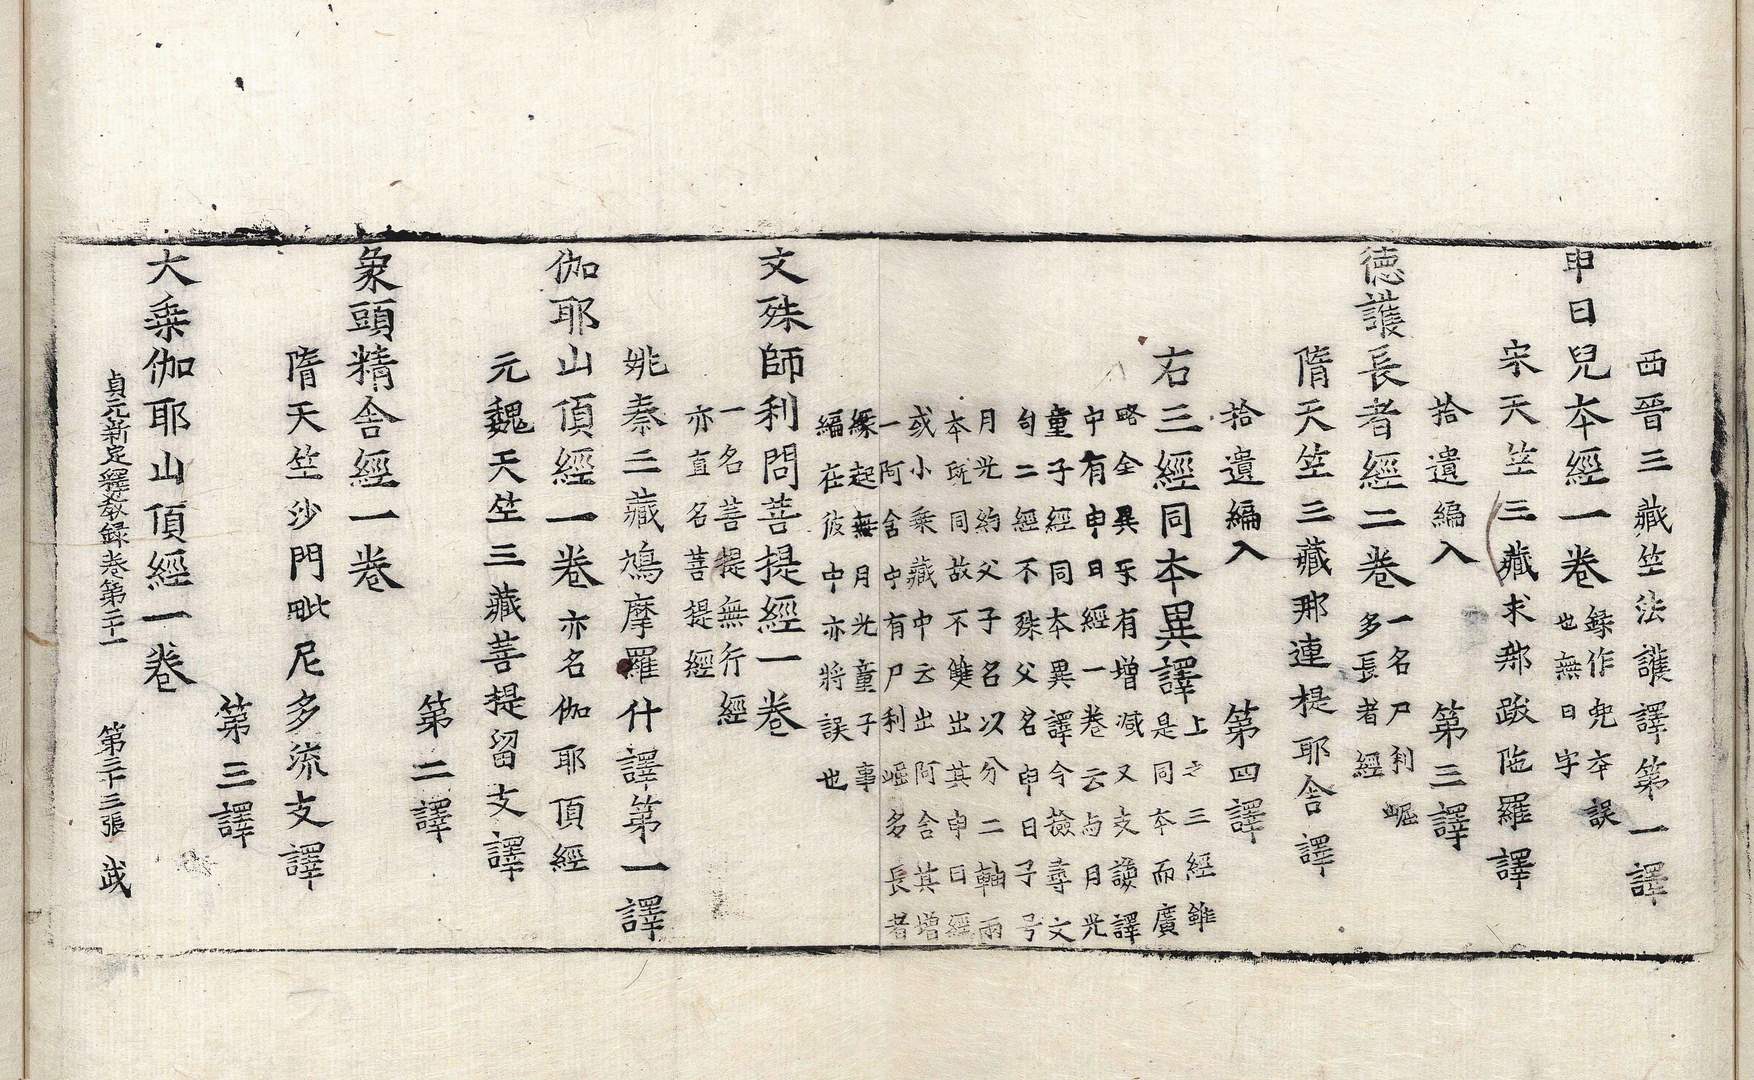 西晉三藏竺法護譯第一譯
申日兒本經一卷錄作兜本誤
也無日字
宋天竺三藏求那跋陁羅譯
拾遺編入　第三譯
德護長者經二卷一名尸利崛
多長者經
隋天竺三藏那連提耶舍譯
拾遺編入　第四譯
右三經同本異譯上之三經雖
是同本而廣
略全異互有增减又支謙譯
中有申日經一卷云与月光
童子經同本異譯今撿尋文
句二經不殊父名申日子号
月光約父子名以分二軸兩
本既同故不雙出其申日經
或小乘藏中云出阿含其增
一阿含中有尸利崛多長者
緣起無月光童子事
編在彼中亦將誤也
文殊師利問菩提經一卷
一名菩提無行經
亦直名菩提經
姚秦三藏鳩摩羅什譯第一譯
伽耶山頂經一卷亦名伽耶頂經
元魏天竺三藏菩提留支譯
第二譯
象頭精舍經一卷
隋天竺沙門毗尼多流支譯
第三譯
大乘伽耶山頂經一卷
貞元新定釋教録卷第二十一　第三十三張　武